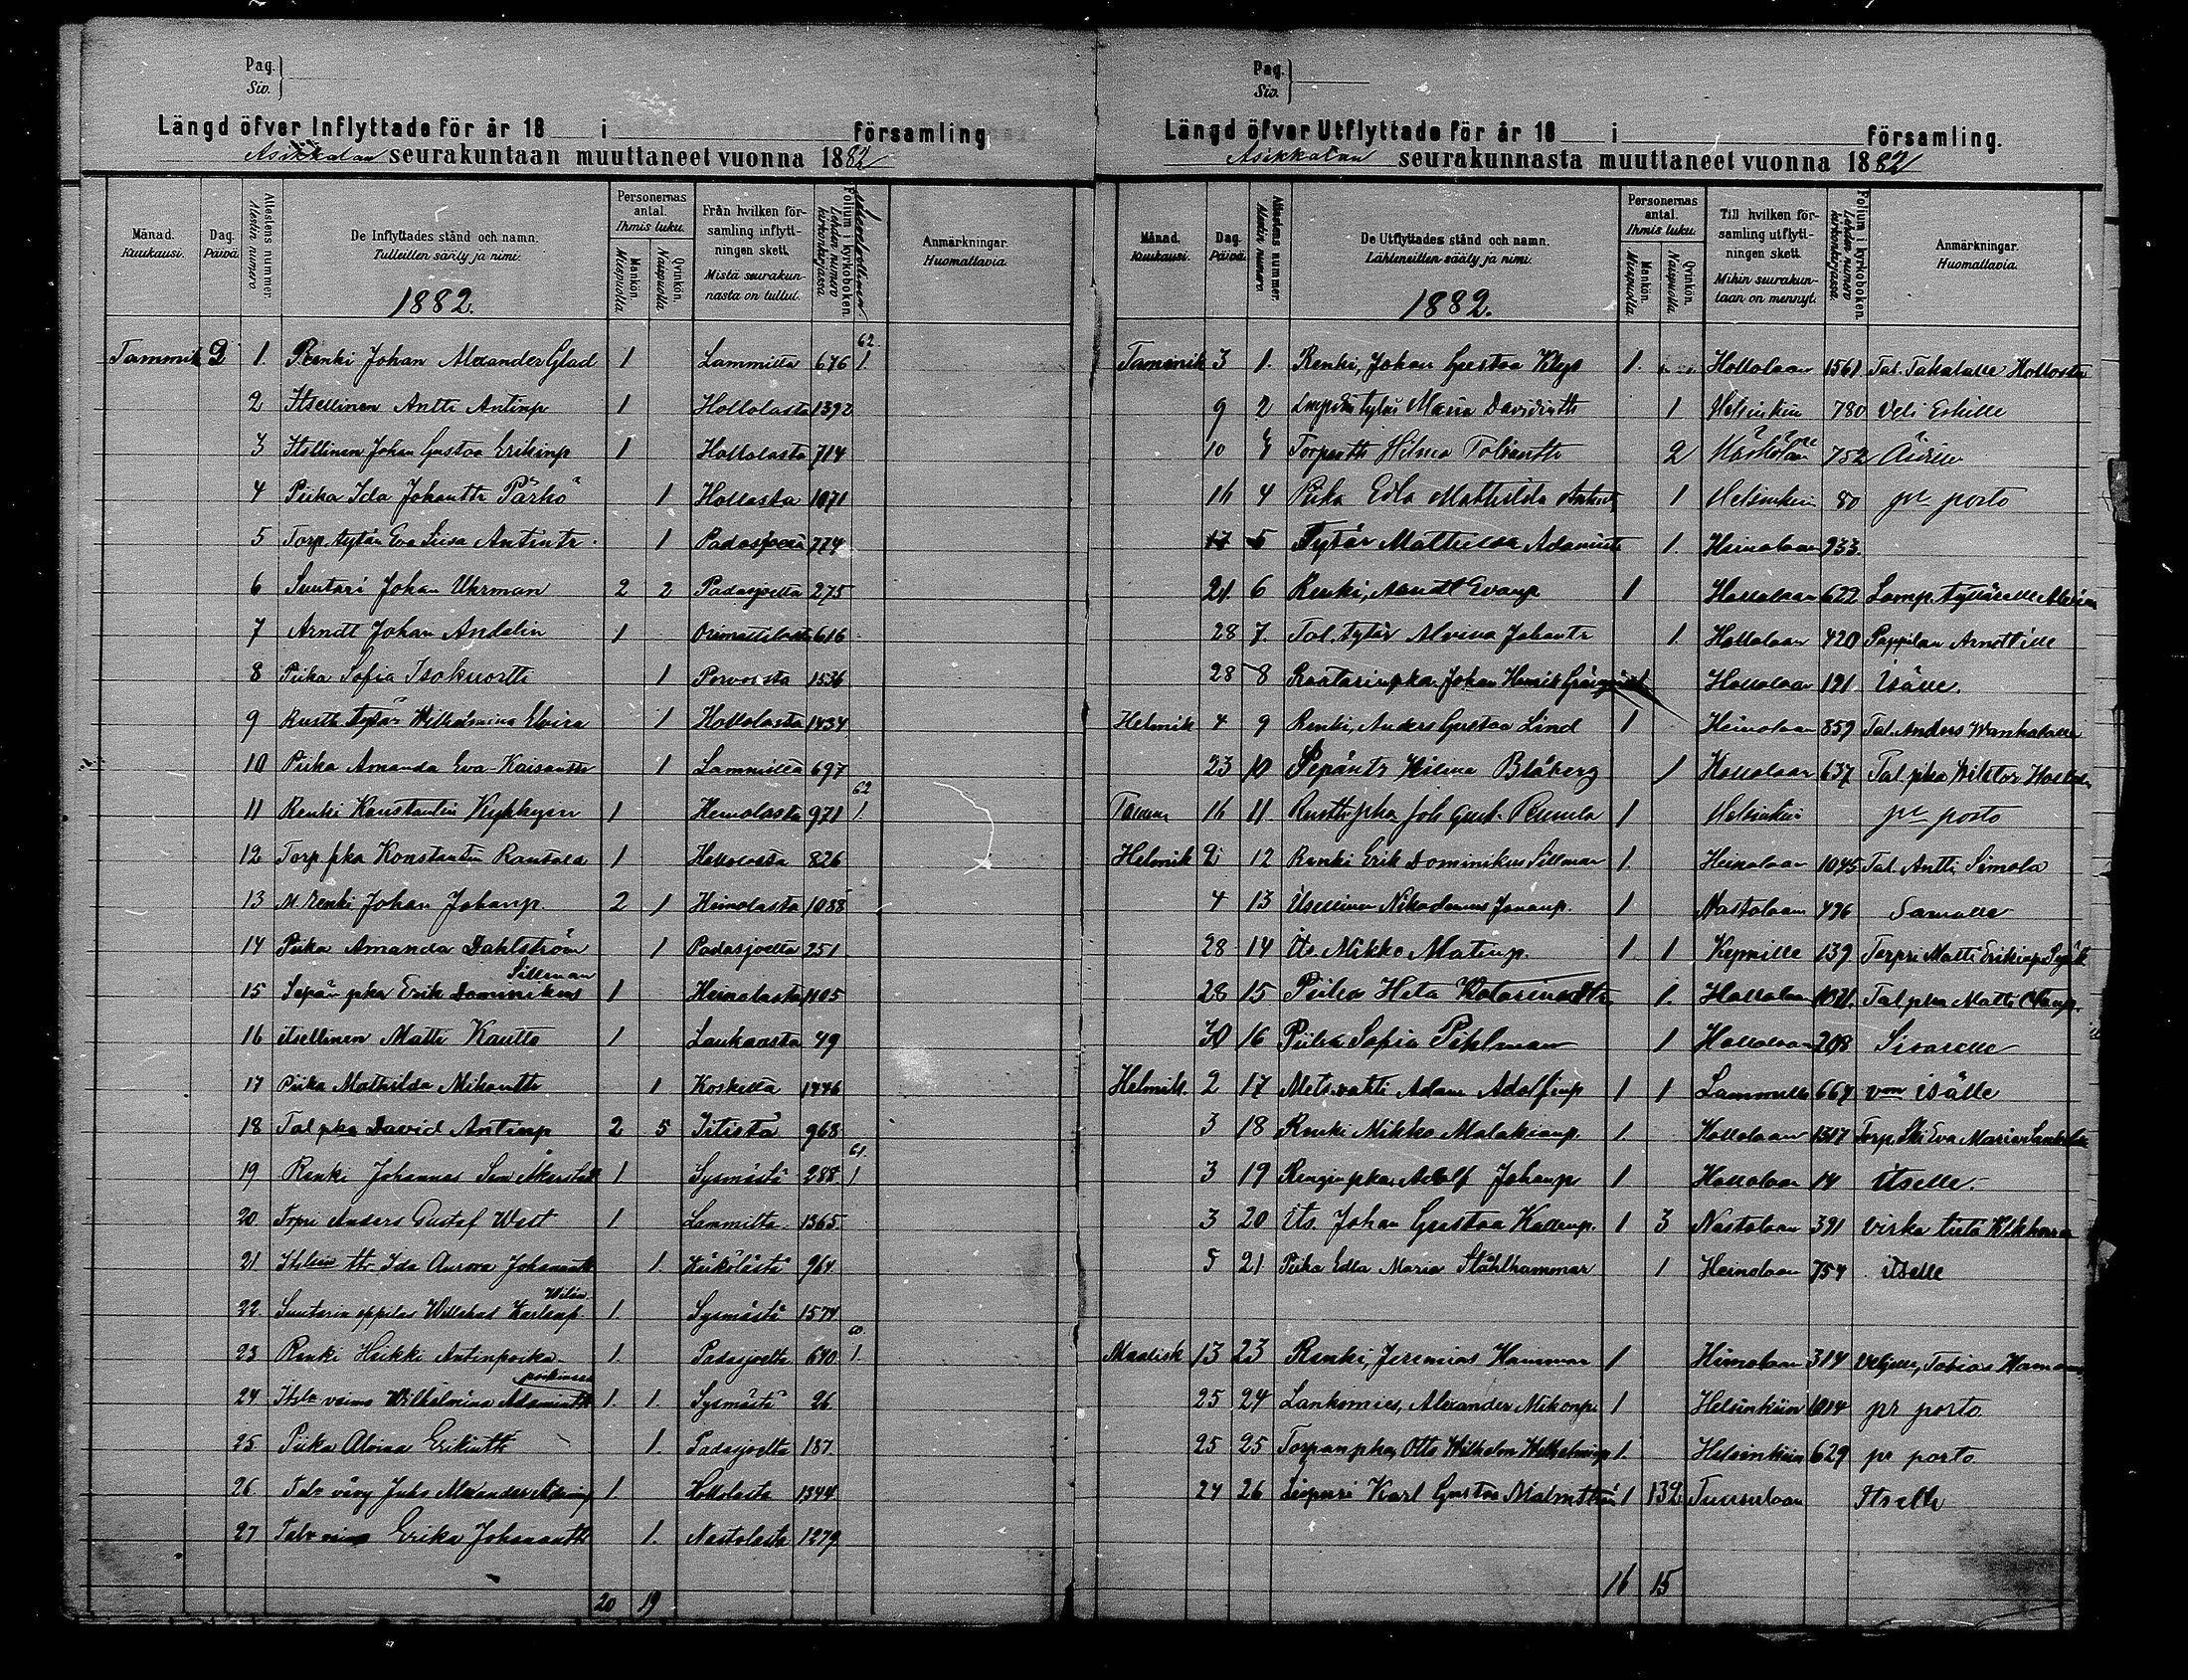 Pag.
Siv.
Längd öfver Inflyttade för år 18 i församling
Asikkalan seurakuntaan muuttaneet vuonna 1882
Månad. Kuukausi.
Dag. Päivä.
Attestens nummer. Alestin numero
De Inflyttades stånd och namn.
Tulleitten sääty ja nimi.
1882.
Personernas antal. Ihmis luku.
Mankön. Miespuolia
Qvinkön. Naispuolia
Från hvilken församling inflyttningen skett.
Mistä seurakunnasta on tullut.
Folium i kyrkoboken. Lehden numero kirkonkirjassa
Anmärkningar. Huomattavia.
Tammik 2 1. Renki Johan Alexander Glad 1 Lammilta 676 62. 1.
2 Itsellinen Antti Antinp 1 Hollolasta 1392
3 Itsellinen Johan Gustaa Erikinp 1 Hollolasta 714
4 Piika Ida Johantr Pärhö 1 Hollolasta 1071
5 Torp. tytär Eva Liisa Antintr. 1 Padasjoelta 774
6 Suutari Johan Uhrman 2 2 Padasjoelta 275
7 Arndt Johan Andelin 1 Orimattilasta 616
8 Piika Sofia 1 Porvoosta 1536
9 Rusth. tytär Wilhelmina Elvira 1 Hollolasta 1434
10 Piika Amanda Eva Kaisantr 1 Lammilta 697
11 Renki Konstantin 1 Heinolasta 971 62 1.
12 Torp. pka Konstantin Rantala 1 Hollolasta 826
13 M. renki Johan Johanp. 2 1 Heinolasta 1088
14 Piika Amanda Dahlström 1 Padasjoelta 251
15 Sepän pka Erik Dominikus Sillman 1 Heinolasta 1105
16 itsellinen Matti Kautto 1 Laukaasta 49
17 Piika Mathilda Mikontr 1 Koskelta 1446
18 Tal pka David Antinp 2 5 Iitistä 968
19 Renki Johannes Sem Åkerstedt 1 Sysmästä 288. 61. 1
20. Torpri Anders Gustaf West 1. Lammilta 1365.
21 Itslisen tr. Ida Aurora Johanintr 1. Kärkölästä 964
22. Suutarin oppilas Willehad Karlinp. Wilén 1. Sysmästä 1574
23 Renki Heikki Antinpoika 1. Padasjoelta 640 60. 1.
24 Itsln vaimo Wilhelmina Adamintr poikineen 1. 1. Sysmästä 26.
25 Piika Alvina Erikintr 1. Padasjoelta 187.
26 Taln vävy Juho Alexander 1 Hollolasta 1344
27 Taln vaimo Erika Johanantr 1. Nastolasta 1279.
20 19
Pag.
Siv.
Längd öfver Utflyttade för år 18 i församling.
Asikkalan seurakunnasta muuttaneet vuonna 1882
Månad. Kuukausi.
Dag. Päivä.
Attestens nummer. Alestin numero
De Utflyttades stånd och namn.
Lähteneitten sääty ja nimi.
1882.
Personernas antal. Ihmis luku.
Mankön. Miespuolia
Qvinkön. Naispuolia
Till hvilken församling utflyttningen skett.
Mihin seurakuntaan on mennyt.
Folium i kyrkoboken. Lehden numero kirkonkirjassa.
Anmärkningar. Huomattavia.
Tammik 3 1. Renki, Johan Gustaa 1. Hollolaan 1561 Tal. Takatalle
9 2 tytär Maria Davidintr 1 Helsinkiin 780 Veli Eskille
10 3 Torpantr Hilma 2 Kärkölään 752 Äidille
16 4 Piika Edla Mathilda 1 Helsinkiin 80 pr porto
17 5 Tytär Mathilda Adamintr 1. Heinolaan 933.
21 6 Renki, Arndt Evanp. 1 Hollolaan 622
28 7. Tal. tytär Alvina Johantr 1. Hollolaan 420 Pappilan Arndtille
28 8 Räätärinpka Johan Henrik Hollolaan 191 Isälle.
Helmik 4 9 Renki, Anders Gustaa Lind 1 Heinolaan 859 Tal. Anders Wanhatalle
23 10 Sepäntr Hilma Blåberg 1 Hollolaan 637 Tal pka
Tammi 16 11 Rustt. pka Joh Gust. 1 Helsinkiin pr porto
Helmik 2 12 Renki Erik Dominikus Sillman 1. Heinolaan 1045 Tal. Antti Simola
4 13 Itsellinen Nikodemus 1 Nastolaan 496 Samalle
28 14 Its. Mikko Matinp. 1. 1 139 Torpri Matti Erikinp
28 15 Piika Heta 1. Hollolaan 1021. Tal pka Matti
30 16 Piika Sofia Pihlman 1 Hollolaan 208 Sisarelle
Helmik. 2 17 Mets.vahti Adam Adolfinp 1 1 Lammille 667 vm isälle
3 18 Renki Mikko Malakianp. 1. Hollolaan 1317 Torp. lski Eva Maria
3 19 Renginpka, Adolf Johanp 1 Hollolaan 14 itselle.
3 20 Its. Johan Gustaa Kallenp. 1 3 Nastolaan 391
5 21 Piika Edla Maria Stålhammar 1 Heinolaan 754 itselle
Maalisk 13 23 Renki, Jeremias Hammar 1 Heinolaan 314 Veljelle, Tobias
25 24 Lankomies, Alexander Mikonp. 1 Helsinkiin 1014 pr porto.
25 25 Torpanpka, Otto Wilhelm Wilhelminp 1. Helsinkiin 629 pr porto
24 26 Karl Gustaa Malmström 1 132 Tuusulaan Itselle
16 15